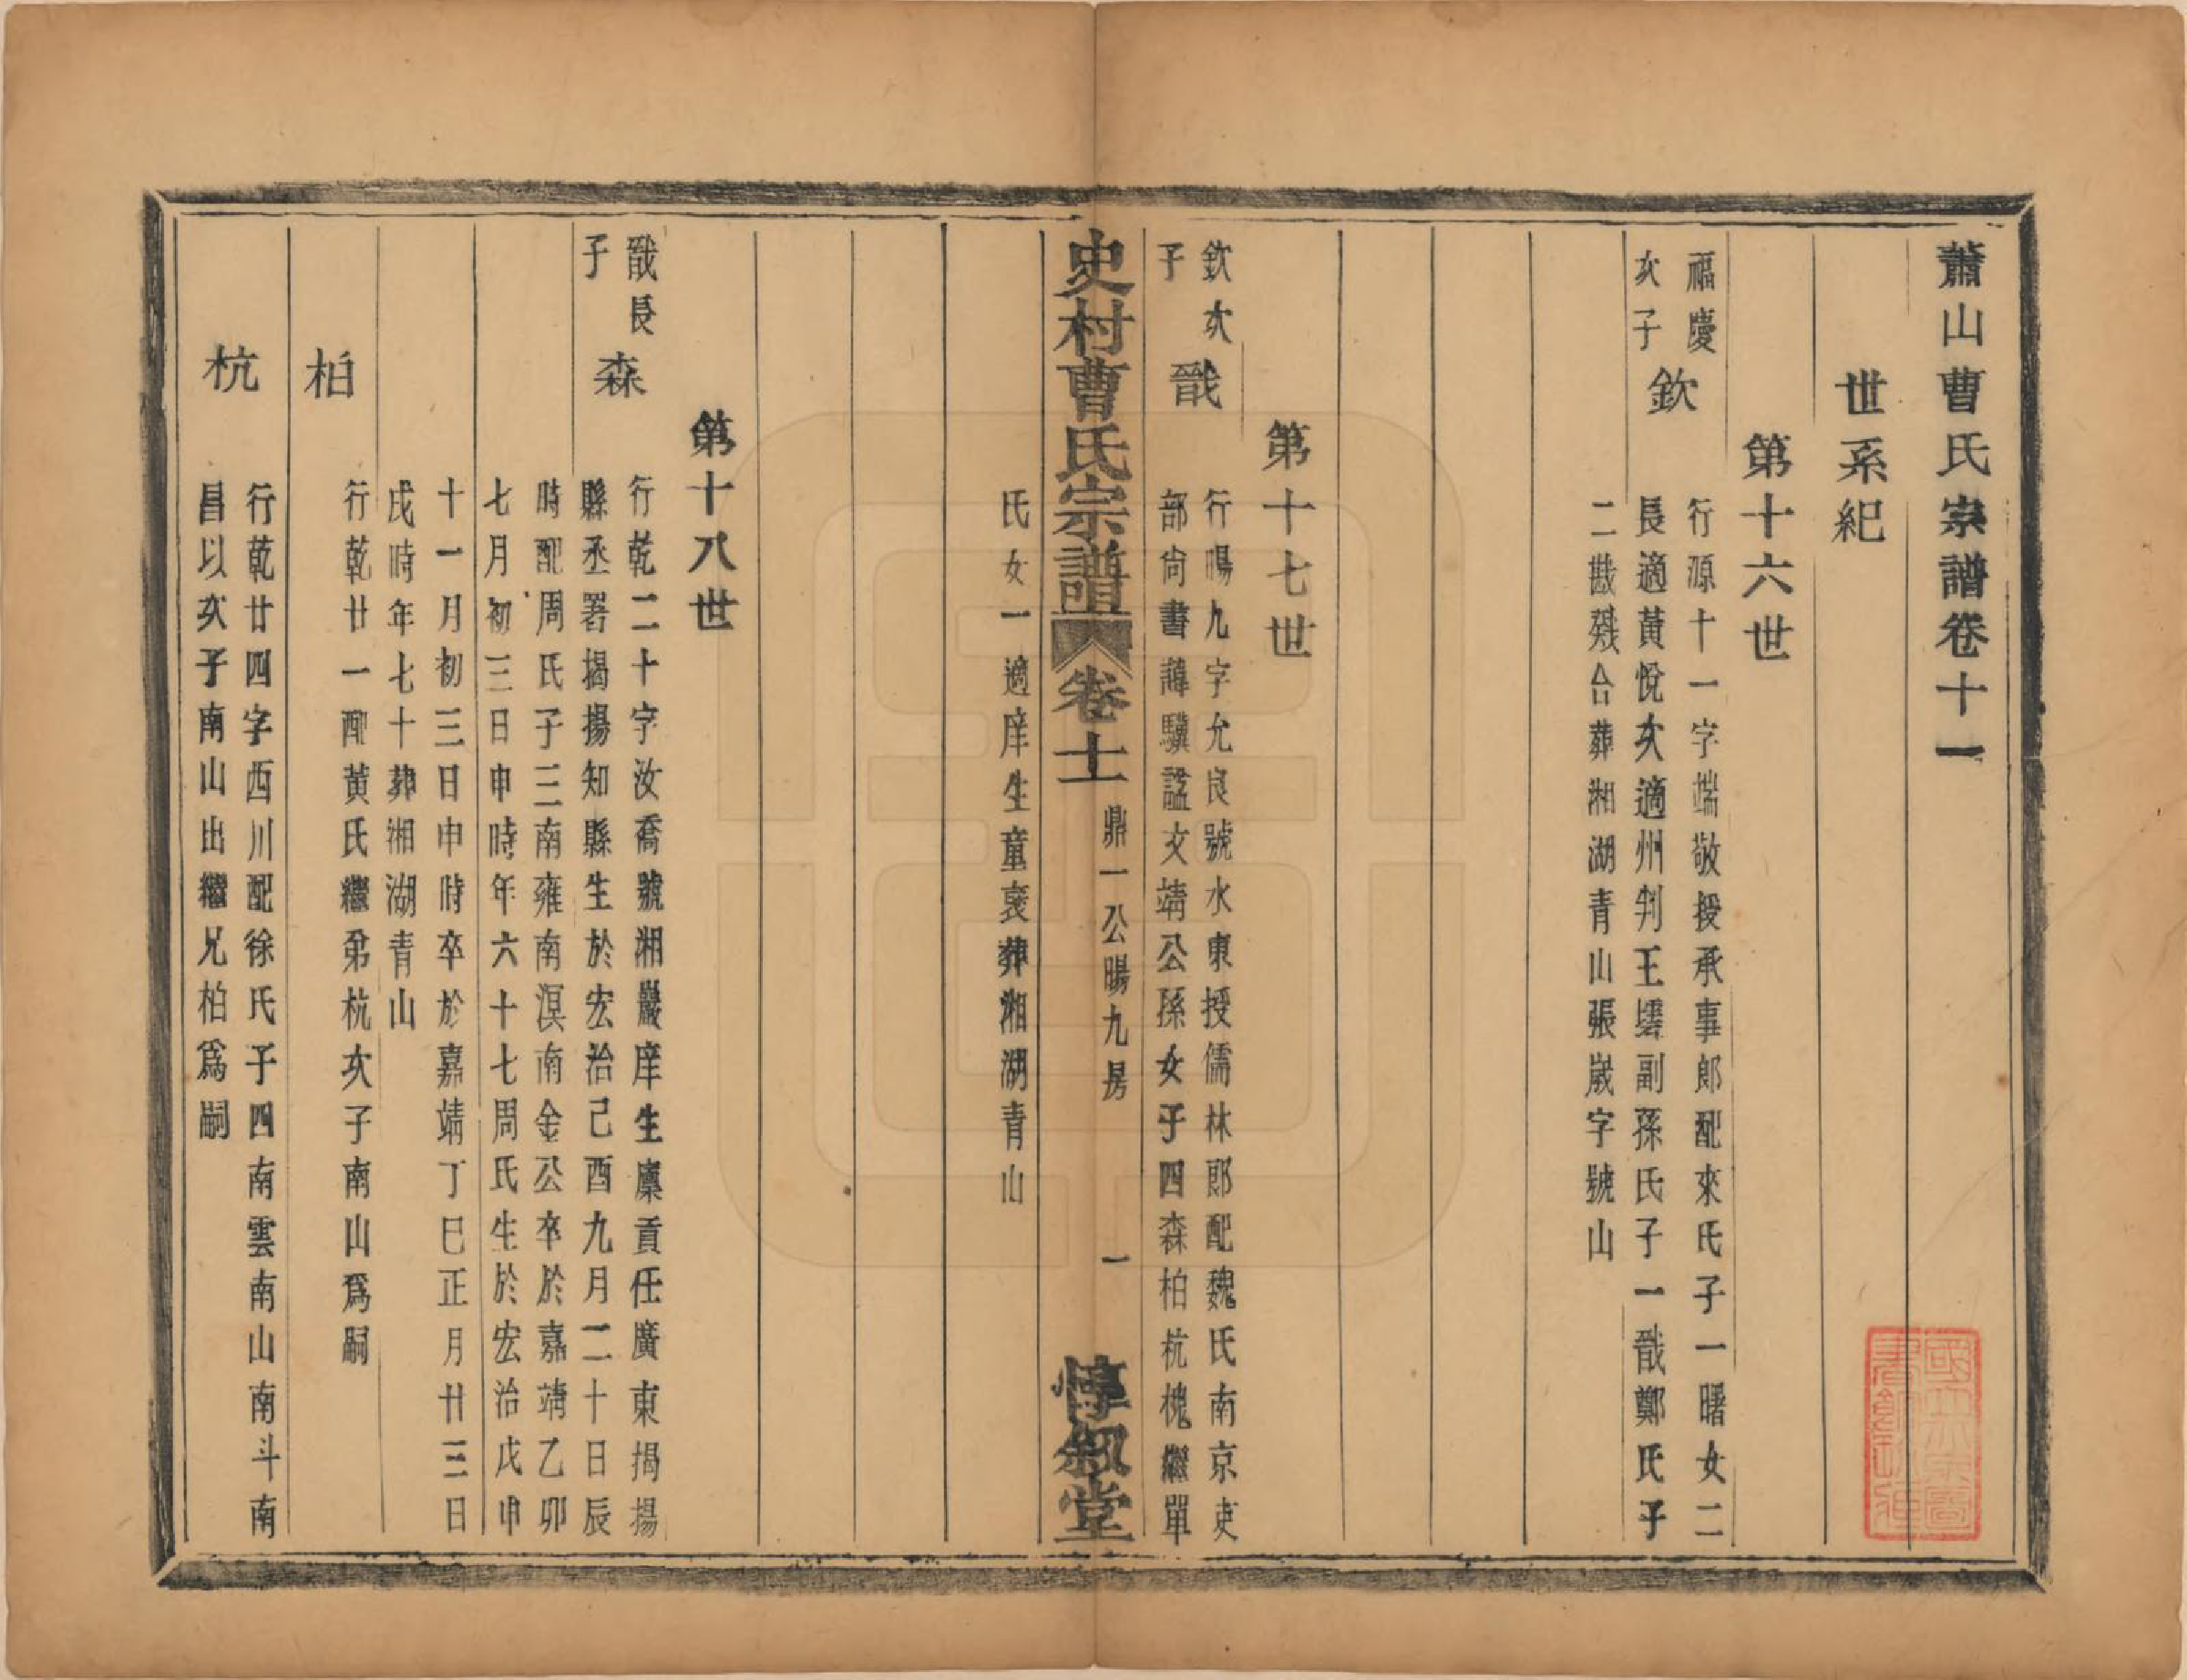 蕭山曹氏宗譜卷十一
世系紀
第十六世
福慶
次子
欽
行源十一字端敬授承事郎配來氏子一曙女二
長適黃悅次適州判王墸副孫氏子一戩鄭氏子
二戡殘合葬湘湖青山張嵗字號山
第十七世
欽次
子
戩
行暘九字允良號水東授儒林郎配魏氏南京吏
部尙書驥諡文靖公孫女子四森柏杭槐繼單
氏女一適庠生童褒葬湘湖青山
史村曹氏宗譜
卷十一
鼎一公暘九房
一
惇叙堂
第十八世
戩長
子
森
行乾二十字汝喬號湘巖庠生廩貢任廣東揭揚
縣丞署揭揚知縣生於宏治己酉九月二十日辰
時配周氏子三南雍南溟南金公卒於嘉靖乙卯
七月初三日申時年六十七周氏生於宏治戊申
十一月初三日申時卒於嘉靖丁巳正月廿三日
戌時年七十葬湘湖青山
柏
行乾廿一配黃氏繼弟杭次子南山爲嗣
杭
行乾廿四字西川配徐氏子四南雲南山南斗南
昌以次子南山出繼兄柏爲嗣